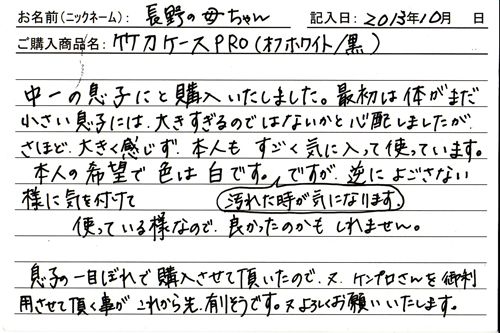 お名前(ニックネーム): 長野の母ちゃん 記入日: 2013年10月 日
ご購入商品名: 竹刀ケースPRO(オフホワイト/黒)
中一の息子にと購入いたしました。最初は体がまだ
小さい息子には、大きすぎるのではないかと心配しましたが、
さほど、大きく感じず、本人も すごく気に入って使っています。
本人の希望で色は白です。ですが、逆によごさない
様に気を付けて 汚れた時が気になります。
使っている様なので、良かったのかもしれません。
息子の一目ぼれで購入させて頂いたので、又、ケンプロさんを御利
用させて頂く事が これから先、有りそうです。又よろしくお願いいたします。